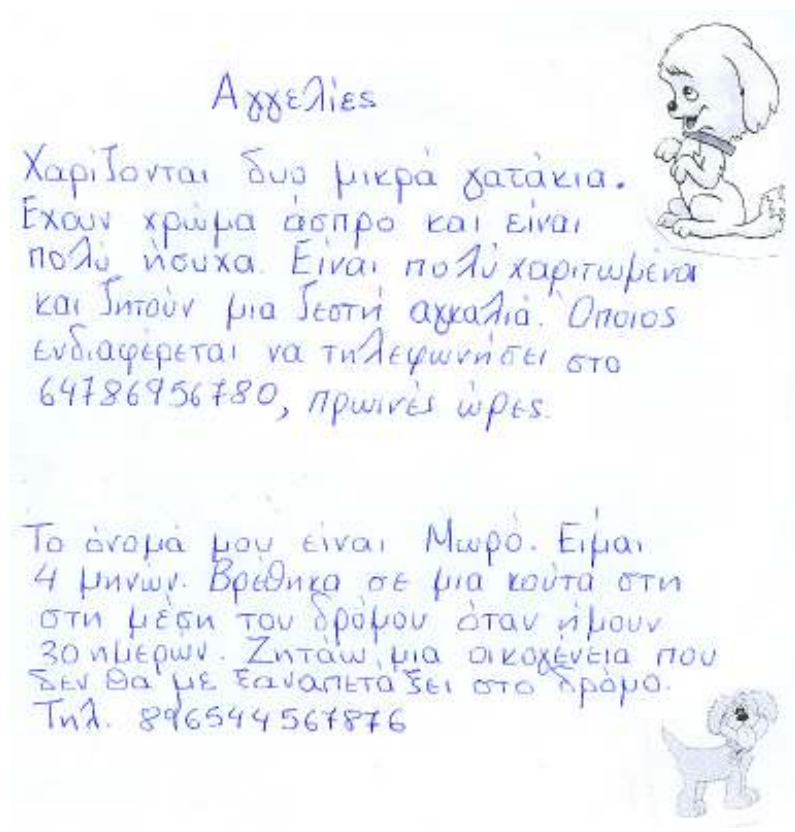 Αγγελίες
Χαρίζονται δυο μικρά γατάκια.
Έχουν χρώμα άσπρο και είναι
πολύ ήσυχα. Είναι πολύ χαριτωμένα
και ζητούν μια ζεστή αγκαλιά. Όποιος
ενδιαφέρεται να τηλεφωνήσει στο
64786956780, πρωινές ώρες.
Το όνομά μου είναι Μωρό. Είμαι
4 μηνών. Βρέθηκα σε μια κούτα στη
στη μέση του δρόμου όταν ήμουν
30 ημερών. Ζητάω μια οικογένεια που
δεν θα με ξαναπετάξει στο δρόμο.
Τηλ. 896544567876